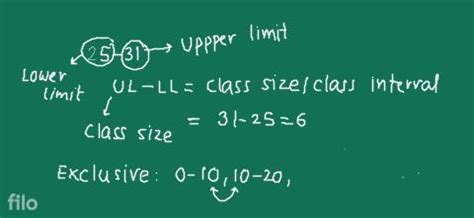 25-31 → Uppper limit
Lower limit
UL-LL = class size/class interval
class size
= 31-25=6
Exclusive: 0-10, 10-20,
filo